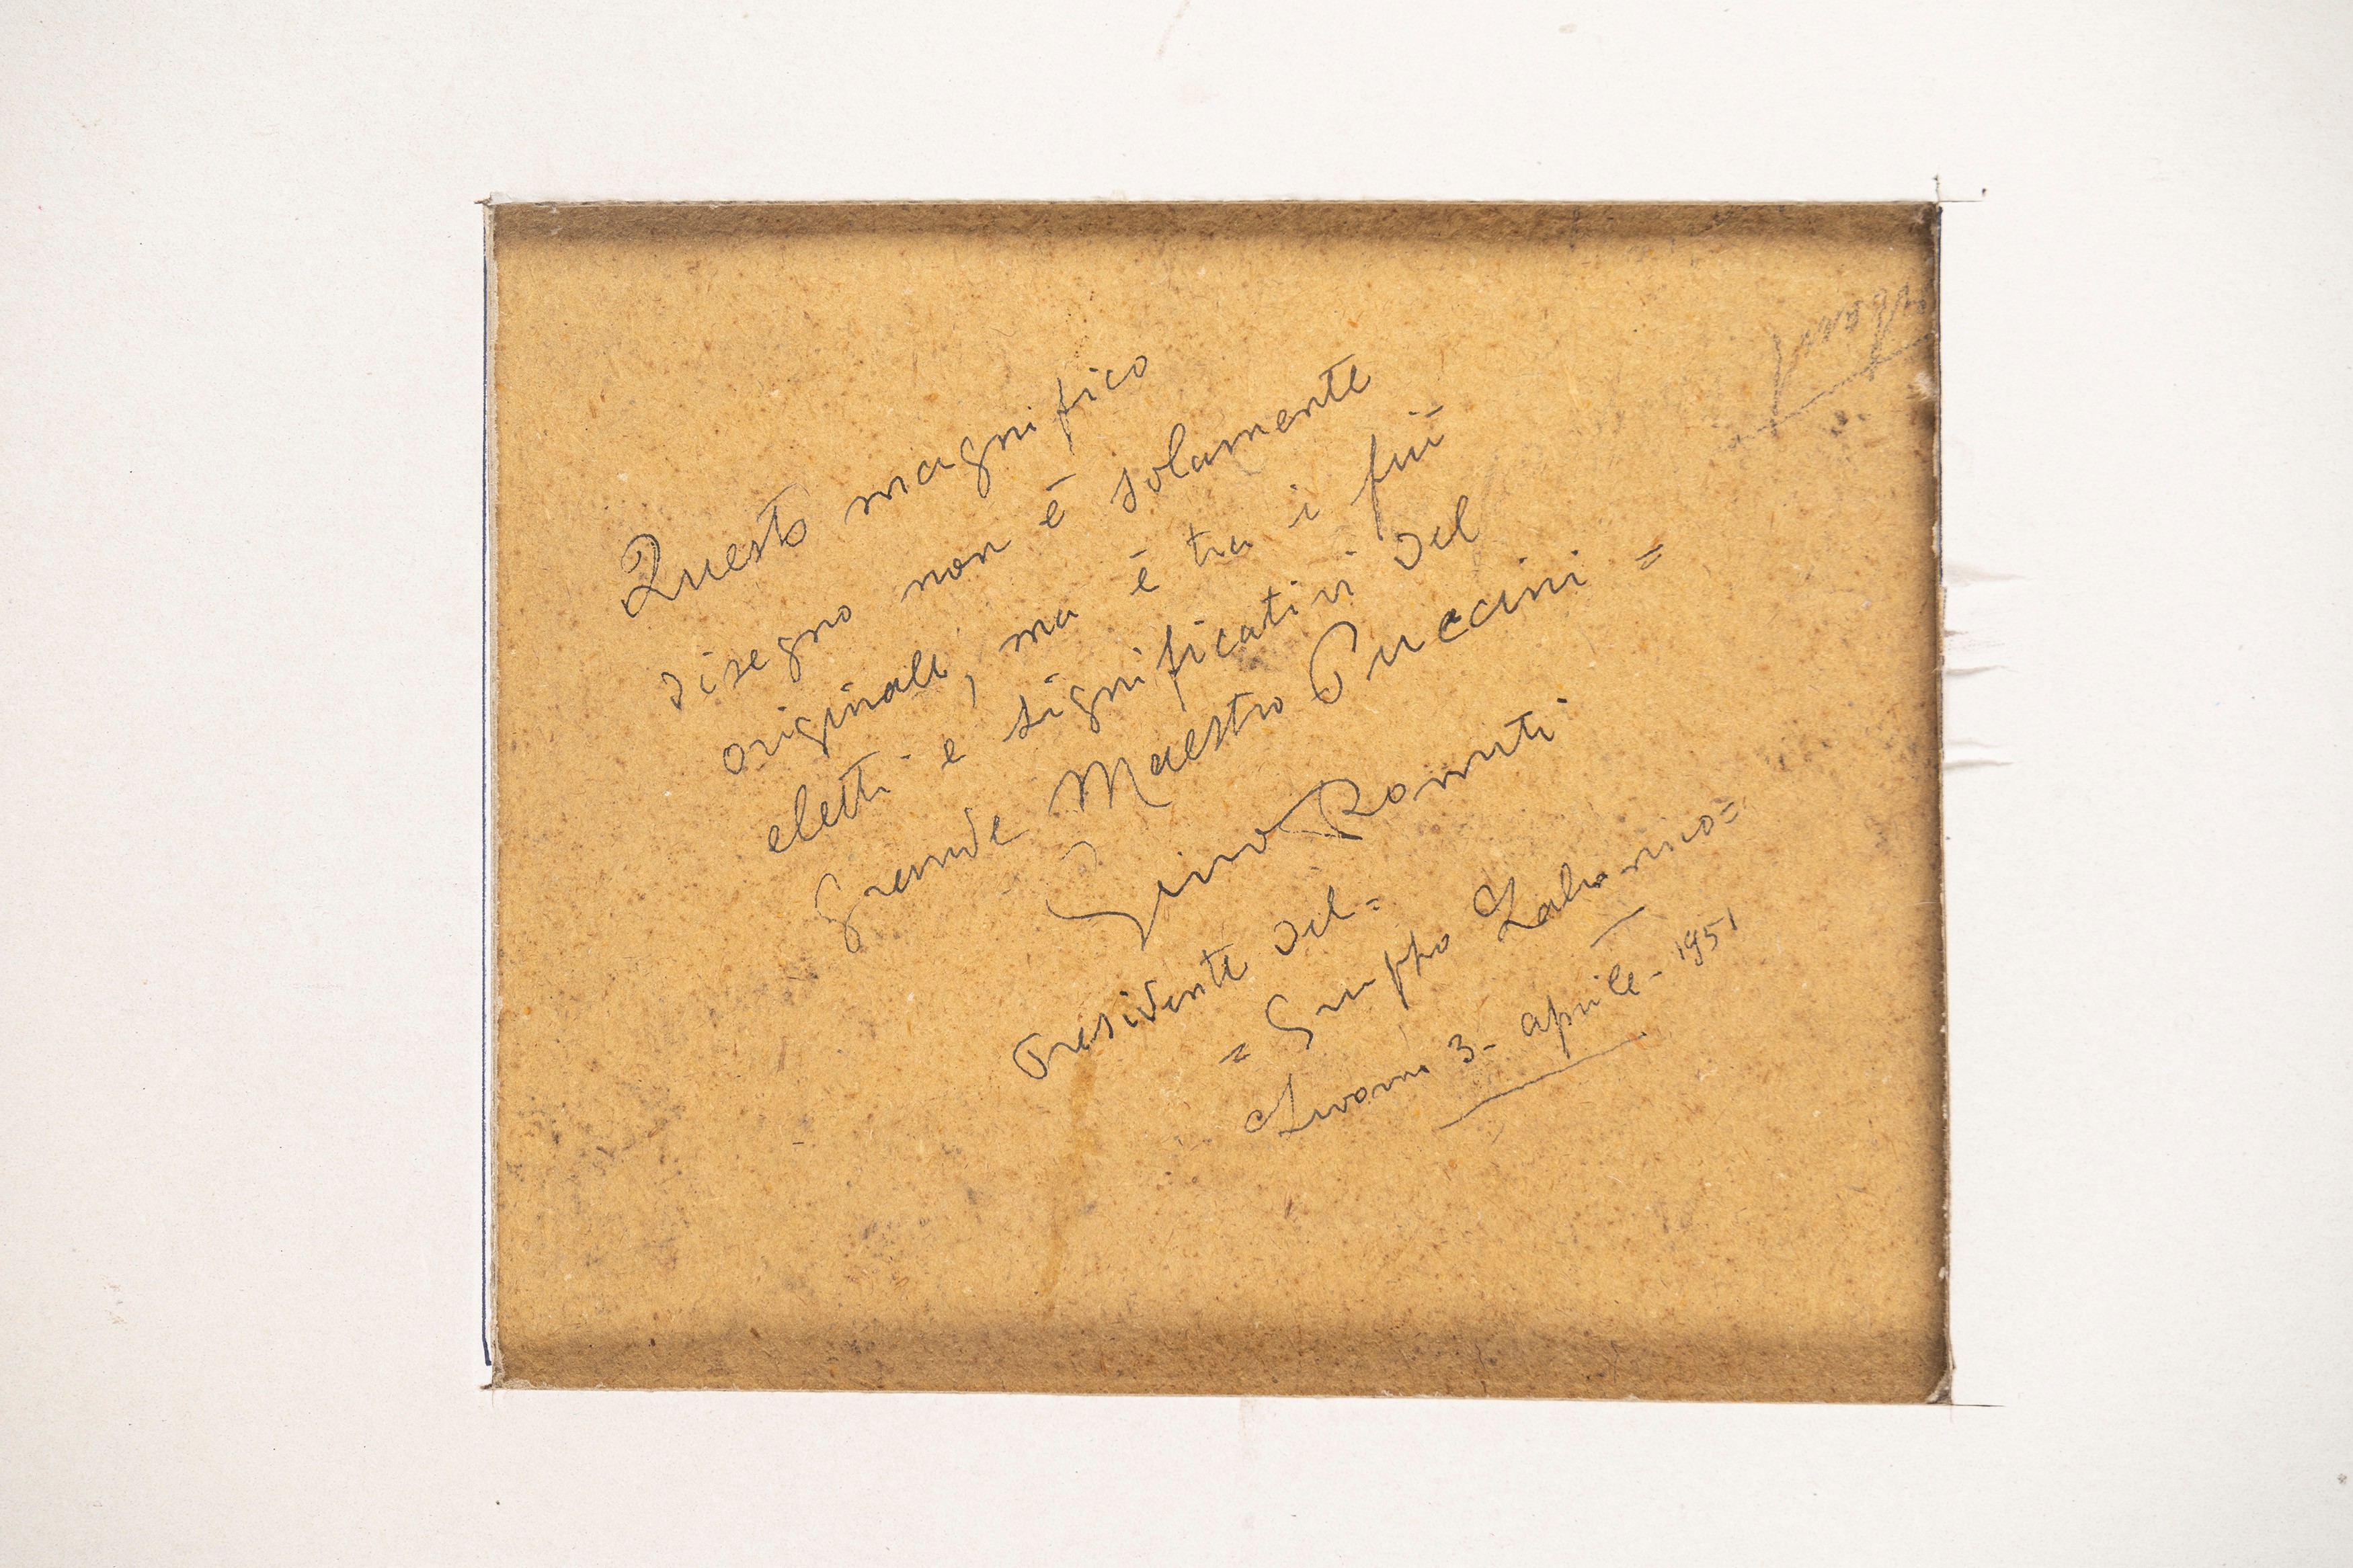 Questo magnifico
disegno non è solamente
originale, ma è tra i più
eletti e significativi del
grande Maestro Puccini =
Gino Romiti
Presidente del =
= Gruppo Labronico =
Livorno 3 - aprile - 1951